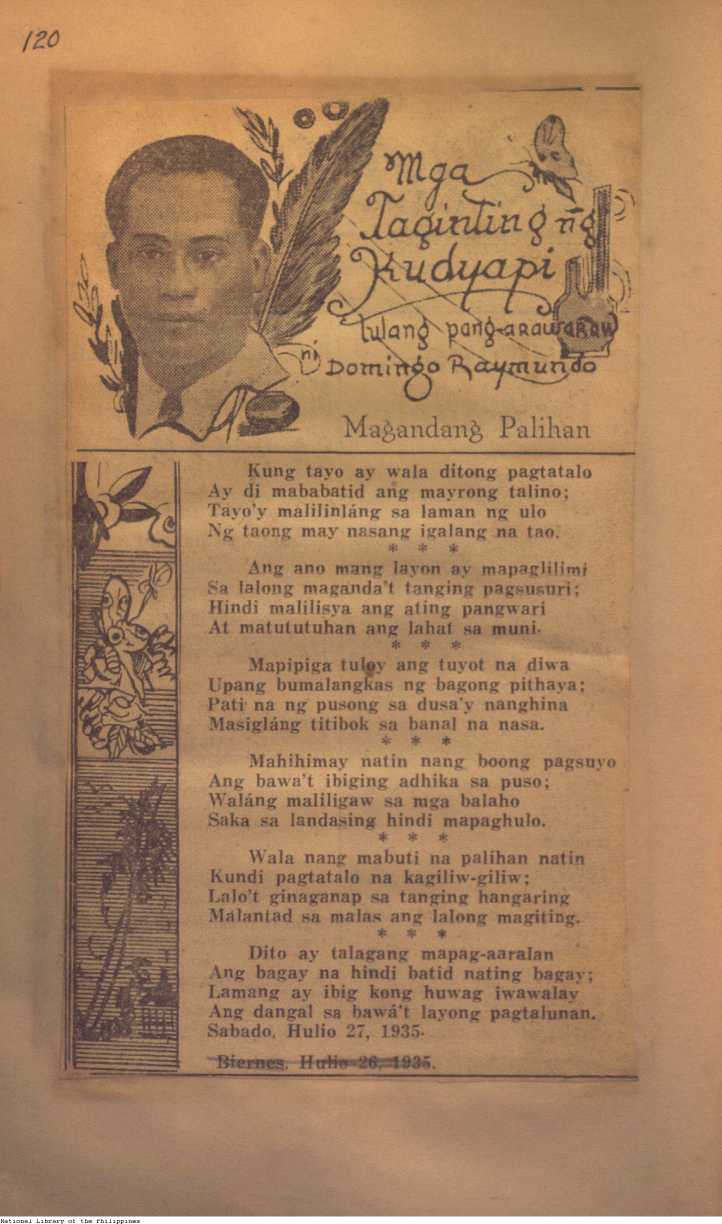 120
Mga
Taginting n̄g
Kudyapi
tulang pang-araw-araw
ni
Domingo Raymundo
Magandang Palihan
Kung tayo ay wala ditong pagtatalo
Ay di mababatid ang mayrong talino;
Tayo'y malilinláng sa laman ng ulo
Ng taong may nasang igalang na tao.
* * *
Ang ano mang layon ay mapaglilimi
Sa lalong maganda't tanging pagsusuri;
Hindi malilisya ang ating pangwari
At matututuhan ang lahat sa muni.
* * *
Mapipiga tuloy ang tuyot na diwa
Upang bumalangkas ng bagong pithaya;
Pati na ng pusong sa dusa'y nanghina
Masigláng titibok sa banal na nasa.
* * *
Mahihimay natin nang boong pagsuyo
Ang bawa't ibiging adhika sa puso;
Waláng maliligaw sa mga balaho
Saka sa landasing hindi mapaghulo.
* * *
Wala nang mabuti na palihan natin
Kundi pagtatalo na kagiliw-giliw;
Lalo't ginaganap sa tanging hangaring
Malantad sa malas ang lalong magiting.
* * *
Dito ay talagang mapag-aaralan
Ang bagay na hindi batid nating bagay;
Lamang ay ibig kong huwag iwawalay
Ang dangal sa bawá't layong pagtalunan.
Sabado, Hulio 27, 1935.
Biernes, Hulio 26, 1935.
National Library of the Philippines